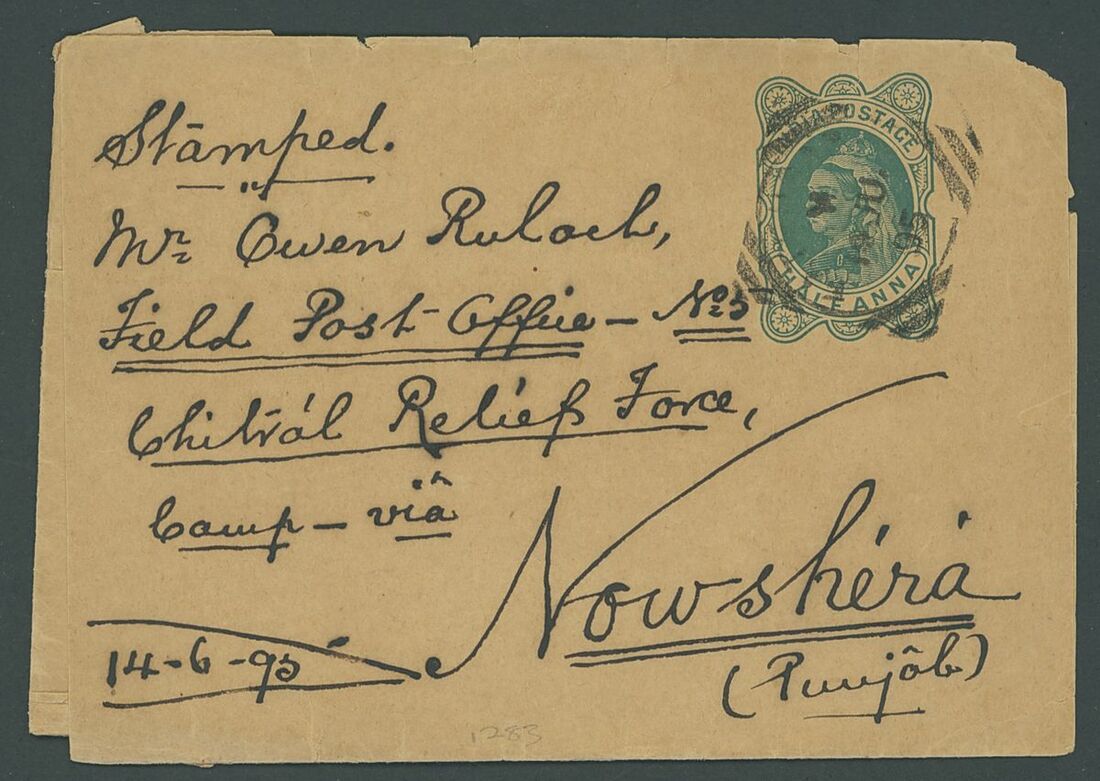 Stamped.
INDIA POSTAGE
HALF ANNA
JU
95
Mr Owen Ruloch,
Field Post Office – No 5
Chitrál Relief Force,
Camp – viâ
Nowshérá
(Punjâb)
14-6-95
1283